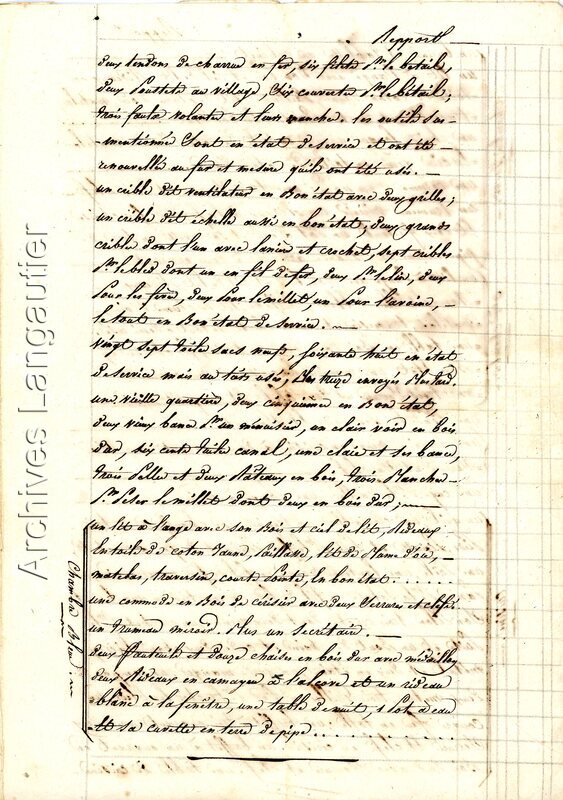 Report
deux tendons de charrue en fer, six filets Pr. le betail,
deux Poussets au village, Six couvertes Pr. le bétail;
trois faulx volantes et leurs manche. les outils Sus-
mentionné Sont en état de service et ont été
renouvellé au fur et mesure qu'ils ont été usés. —
un crible dit ventilateur en Bon état avec deux grilles;
un crible dit échelle aussi en bon état, deux grands
cribles dont l'un avec lanière et crochet, sept cribles
Pr. le bled dont un en fil de fer, deux Pr. le lin, deux
Pour les fève, deux Pour le millet, un Pour l'avoine, —
le tout en Bon état de service. —
vingt sept toile sacs neufs, soixante huit en état
de service mais au tiers usés; Plus treize envoyés Plus tard.
une vieille quartière, deux cinquième en Bon état,
deux vieux banc Pr. un ménuisier, un clair voir en bois
dur, six cents tuile canal, une claie et ses bancs,
trois Pelle et deux Râteaux en bois, trois Planches
Pr. Peser le millet dont deux en bois dur; —
un lit à l'ange avec son Bois et ciel de lit, Rideaux
En toile de coton Jaune, Paillasse, lit de Plume d'oie, —
matelas, traversin, courte Pointe, En bon état. . . . .
une commode en Bois de cerisier avec deux Serrures et clefs.
un trumeau miroir. Plus un Secrétaire. —
deux fauteuils et douze chaises en bois dur avec médaillon
deux Rideaux en camayeu à l'alcove et un rideau
blanc à la fenêtre, une table de nuit, 1 Pot à eau
et sa cuvette en terre de pipe . . . . . . . .
Chambre Bleu. —
Archives Langautier